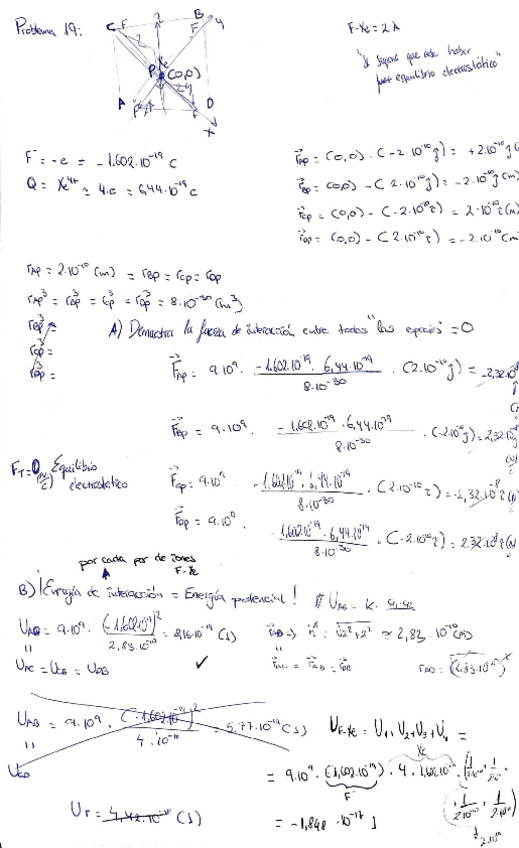 Problema 19:
C F B y
F
P (0,0)
A F D
x
F-Xe = 2 Å
"Se supone que debe haber
por equilibrio electrostático"
F⁻ = -e = -1.602·10⁻¹⁹ C
Q = Xe⁴⁺ = 4·e = 6,44·10⁻¹⁹ C
r⃗AP = (0,0) - (-2·10⁻¹⁰ j) = +2·10⁻¹⁰
r⃗BP = (0,0) - (2·10⁻¹⁰ j) = -2·10⁻¹⁰ j (m)
r⃗CP = (0,0) - (-2·10⁻¹⁰ i) = 2·10⁻¹⁰ i (m)
r⃗DP = (0,0) - (2·10⁻¹⁰ i) = -2·10⁻¹⁰ (m)
rAP = 2·10⁻¹⁰ (m) = rBP = rCP = rDP
rAP³ = rBP³ = rCP³ = rDP³ = 8·10⁻³⁰ (m³)
A) Demuestra la fuerza de interacción entre todas "las especies" = 0
F⃗AP = 9·10⁹ · -1.602·10⁻¹⁹ · 6,44·10⁻¹⁹ / 8·10⁻³⁰ · (2·10⁻¹⁰ j) = -2,32·10⁻⁸ j
F⃗BP = 9·10⁹ · -1.602·10⁻¹⁹ · 6,44·10⁻¹⁹ / 8·10⁻³⁰ · (-2·10⁻¹⁰ j) = 2,32·10⁻⁸ j (N)
FT = 0 (N/C) Equilibrio
electrostático
F⃗CP = 9·10⁹ · -1.602·10⁻¹⁹ · 6,44·10⁻¹⁹ / 8·10⁻³⁰ · (2·10⁻¹⁰ i) = -2,32·10⁻⁸ i (N)
F⃗DP = 9·10⁹ · -1.602·10⁻¹⁹ · 6,44·10⁻¹⁹ / 8·10⁻³⁰ · (-2·10⁻¹⁰ i) = 2,32·10⁻⁸ i (N)
por cada par de iones
F-Xe
B) ¡Energía de interacción = Energía potencial!
UAD = 9·10⁹ · (-1.602·10⁻¹⁹)² / 2,83·10⁻¹⁰ = 8,16·10⁻¹⁹ (J)
√2²+2² = 2,83·10⁻¹⁰ (m)
UAC = UCB = UDB ✓
UAB = 9·10⁹ · (-1.602·10⁻¹⁹)² / 4·10⁻¹⁰ = 5,77·10⁻¹⁹ (J)
UCD
UF-Xe = U1 + U2 + U3 + U4 =
= 9·10⁹ · (-1,602·10⁻¹⁹) · 4 · 1,602·10⁻¹⁹ · (1/2·10⁻¹⁰ + 1/2·10⁻¹⁰
+ 1/2·10⁻¹⁰ + 1/2·10⁻¹⁰)
F Xe
= -1,848·10⁻¹⁷ J
UT = (J)